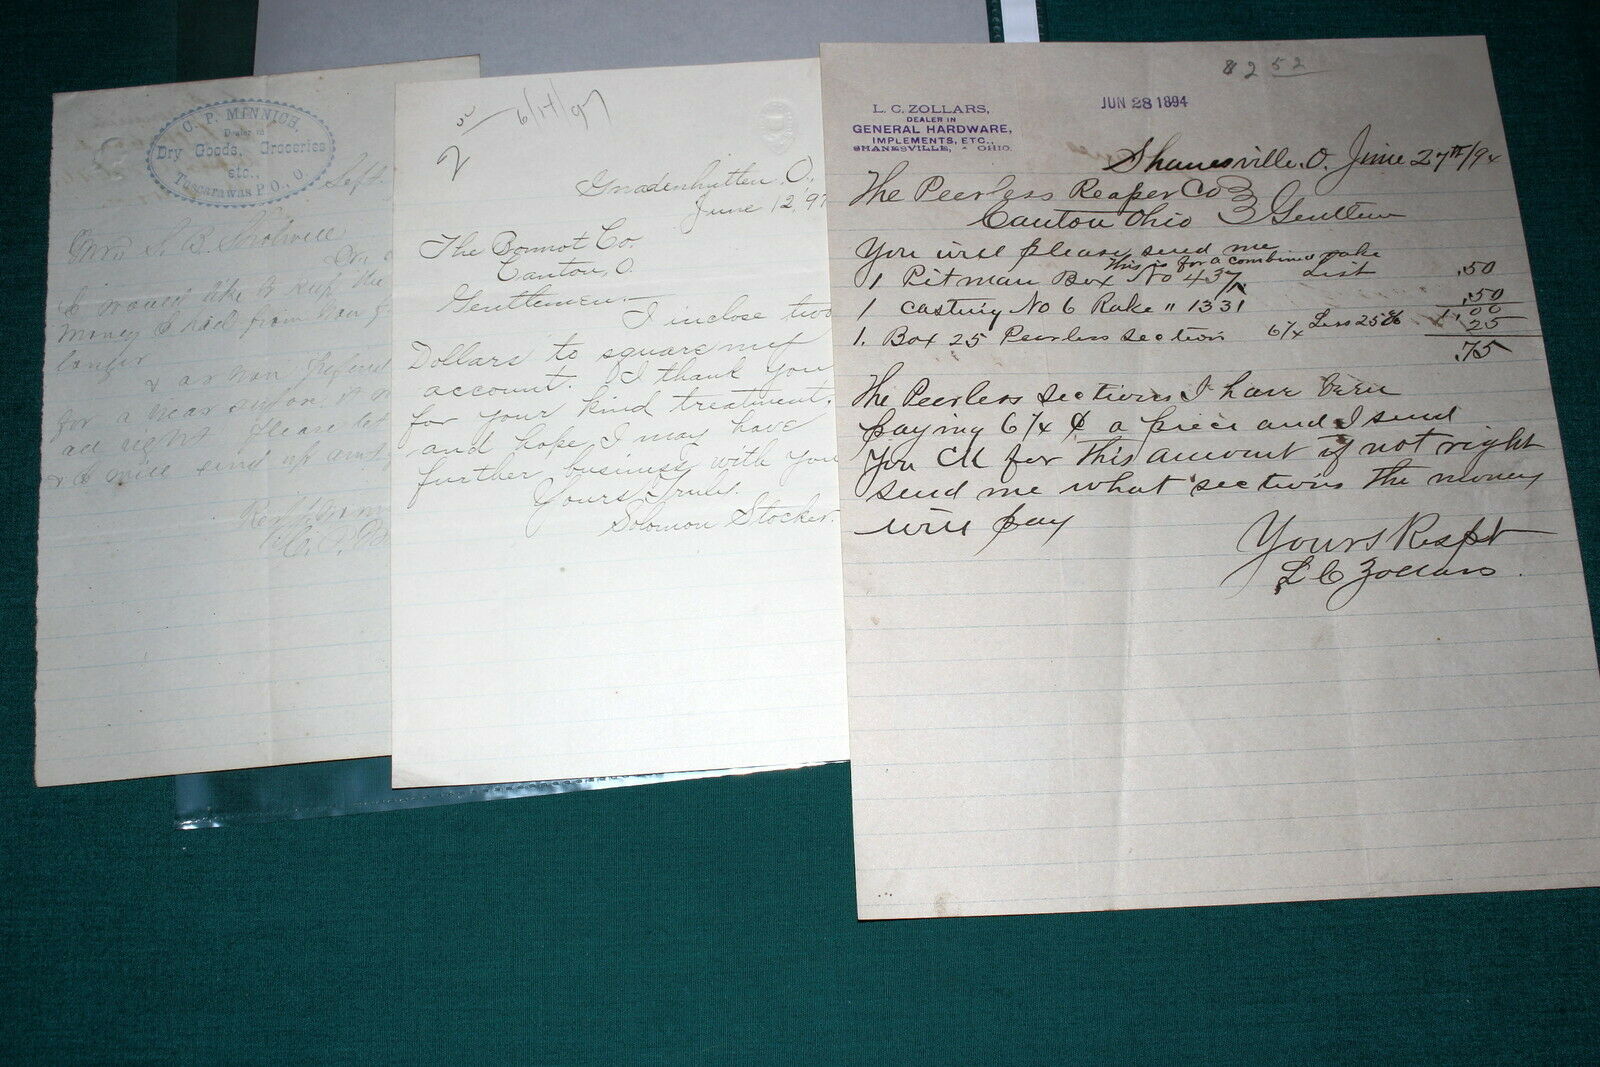 C. P. MINNICH,
Dealer in
Dry Goods, Groceries
etc.,
Tuscarawas P.O., O.
Sept.
Mrs S. B.
I would like to keep the
money I had from you
longer
for a year
all right Please let
& I will send
C. P.
6/17/97
2
Gnadenhutten, O.,
June 12, 97
The Bonnot Co.
Canton, O.
Gentlemen:—
I inclose two
Dollars to square my
account. I thank you
for your kind treatment,
and hope I may have
further business with you
Yours Truly.
Solomon Stocker.
8252
JUN 28 1894
L. C. ZOLLARS,
DEALER IN
GENERAL HARDWARE,
IMPLEMENTS, ETC.,
SHANESVILLE, - OHIO.
Shanesville, O. June 27th/94
The Peerless Reaper Co
Canton Ohio } Gentlem
You will please send me
This is for a combined rake
1 Pitman Box No 437 List .50
1 casting No 6 Rake " 1331 .50
1.00
1. Box 25 Peerless Section 6 1/4 Less 25% 25
.75
The Peerless sections I have been
paying 6 1/4 ¢ a piece and I send
You CK for this amount if not right
send me what sections the money
will pay
Yours Respt
L C Zollars